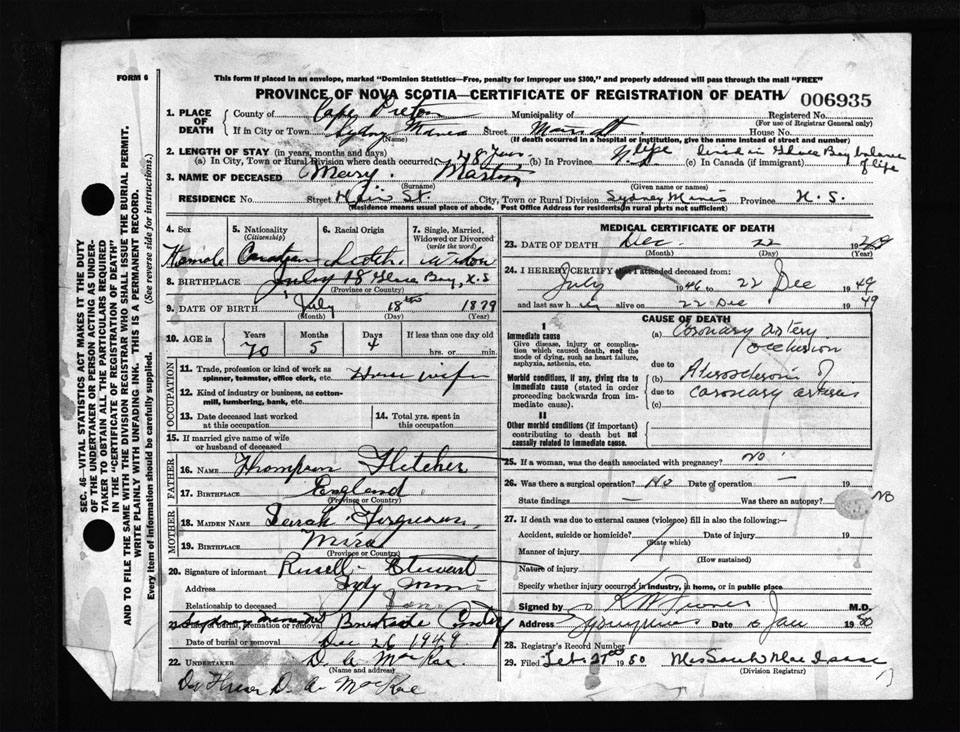 FORM 6
This form if placed in an envelope, marked "Dominion Statistics—Free, penalty for improper use $300," and properly addressed will pass through the mail "FREE"
PROVINCE OF NOVA SCOTIA—CERTIFICATE OF REGISTRATION OF DEATH
006935
1. PLACE OF DEATH
County of Cape Breton Municipality of Registered No.
(For use of Registrar General only)
If in City or Town Sydney Mines Street Main St. House No.
(Name) (If death occurred in a hospital or institution, give name instead of street and number)
2. LENGTH OF STAY (in years, months and days)
(a) In City, Town or Rural Division where death occurred 48 Years (b) In Province life (c) In Canada (if immigrant)
lived in Glace Bay balance of life
3. NAME OF DECEASED Mary Martin
(Surname) (Given name or names)
RESIDENCE No. Street Main St. City, Town or Rural Division Sydney Mines Province N. S.
(Residence means usual place of abode. Post Office Address for residents in rural parts not sufficient)
4. Sex 5. Nationality (Citizenship) 6. Racial Origin 7. Single, Married, Widowed or Divorced (write the word)
Female Canadian Scotch Widow
8. BIRTHPLACE July 18 Glace Bay, N.S
(Province or Country)
9. DATE OF BIRTH July 18th 1879
(Month) (Day) (Year)
10. AGE in Years Months Days If less than one day old
70 5 4 hrs. or min.
OCCUPATION
11. Trade, profession or kind of work as spinner, teamster, office clerk, etc. House wife
12. Kind of industry or business, as cotton-mill, lumbering, bank, etc.
13. Date deceased last worked at this occupation
14. Total yrs. spent in this occupation
15. If married give name of wife or husband of deceased
FATHER
16. NAME Thompson Fletcher
17. BIRTHPLACE England
(Province or Country)
MOTHER
18. MAIDEN NAME Sarah Ferguson
19. BIRTHPLACE Mira
(Province or Country)
20. Signature of informant Russell Stewart
Address Sydney Mines
Relationship to deceased Son
21. Place of burial, cremation or removal Brookside Cemetery
Date of burial or removal Dec 26 1949
22. UNDERTAKER D. A. MacRae
(Name and address)
D. A. MacRae
MEDICAL CERTIFICATE OF DEATH
23. DATE OF DEATH Dec. 22 1949
(Month) (Day) (Year)
24. I HEREBY CERTIFY that I attended deceased from:
July 1946 to 22 Dec 1949
and last saw h alive on 22 Dec 1949
CAUSE OF DEATH
I
Immediate cause
Give disease, injury or complication which caused death, not the mode of dying, such as heart failure, asphyxia, asthenia, etc.
(a) Coronary artery occlusion
due to
Morbid conditions, if any, giving rise to immediate cause (stated in order proceeding backwards from immediate cause).
(b) Atherosclerosis of
due to coronary arteries
(c)
II
Other morbid conditions (if important) contributing to death but not causally related to immediate cause.
25. If a woman, was the death associated with pregnancy? No
26. Was there a surgical operation? No Date of operation — 19
State findings — Was there an autopsy? No
27. If death was due to external causes (violence) fill in also the following:—
Accident, suicide or homicide? Date of injury 19
(State which)
Manner of injury
(How sustained)
Nature of injury
Specify whether injury occurred in industry, in home, or in public place.
Signed by M.D.
Address Sydney Mines Date 6 Jan 1950
28. Registrar's Record Number
29. Filed Feb. 21st 1950 Mrs Sarah MacIsaac
(Division Registrar)
SEC. 46—VITAL STATISTICS ACT MAKES IT THE DUTY OF THE UNDERTAKER OR PERSON ACTING AS UNDERTAKER TO OBTAIN ALL THE PARTICULARS REQUIRED IN THE "CERTIFICATE OF REGISTRATION OF DEATH" AND TO FILE THE SAME WITH THE DIVISION REGISTRAR WHO SHALL ISSUE THE BURIAL PERMIT.
WRITE PLAINLY WITH UNFADING INK. THIS IS A PERMANENT RECORD.
Every item of information should be carefully supplied. (See reverse side for instructions.)